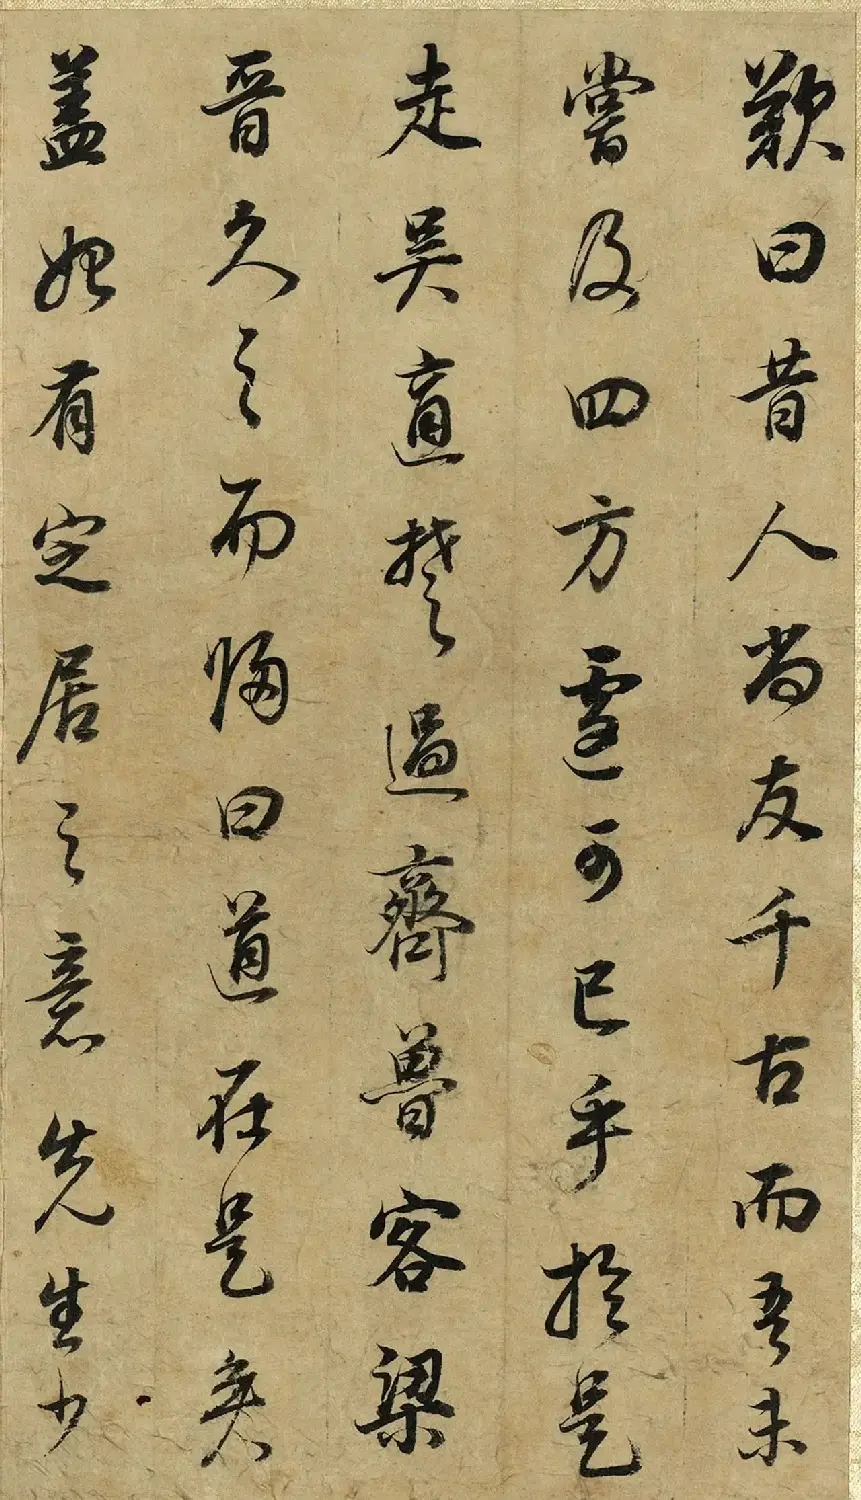 歎曰昔人尚友千古而吾未
嘗及四方遽可已乎於是
走吳適楚過齊魯客梁
晉久之而歸曰道在是矣
蓋始有定居之意先生少